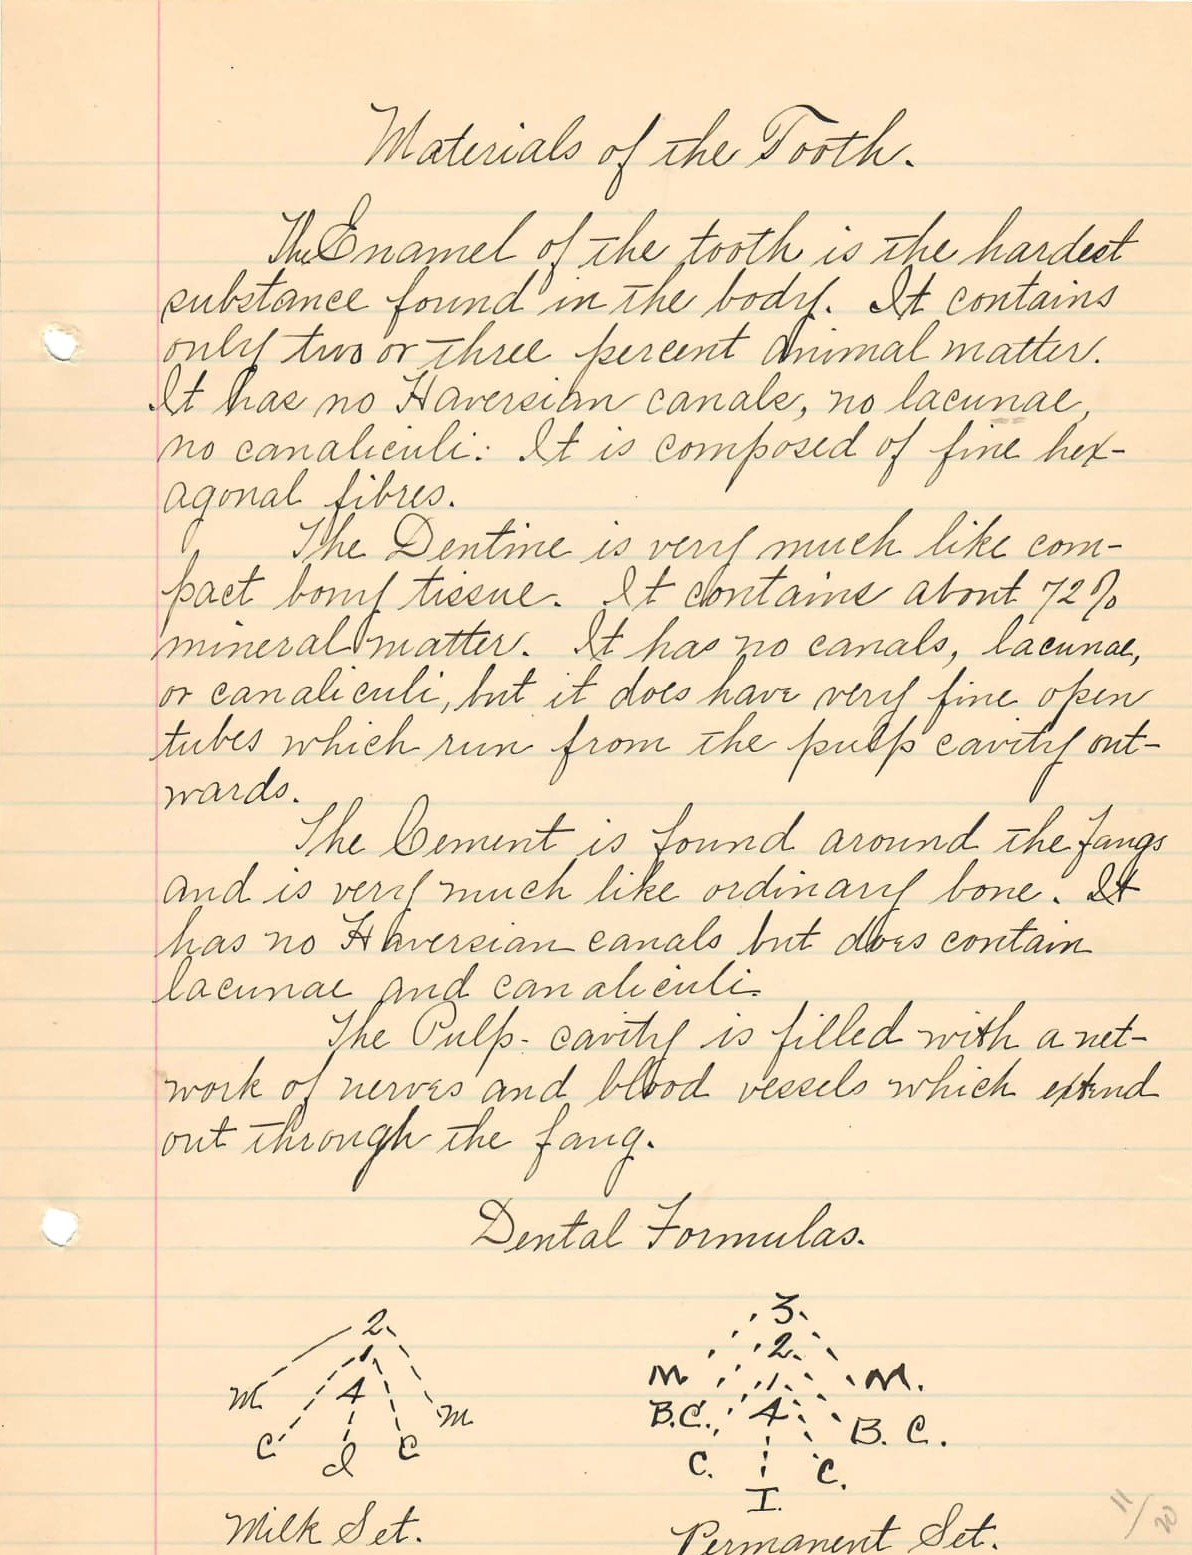 Materials of the Tooth.
The Enamel of the tooth is the hardest
substance found in the body. It contains
only two or three percent animal matter.
It has no Haversian canals, no lacunae,
no canaliculi. It is composed of fine hex-
agonal fibres.
The Dentine is very much like com-
pact bony tissue. It contains about 72%
mineral matter. It has no canals, lacunae,
or canaliculi, but it does have very fine open
tubes which run from the pulp cavity out-
wards.
The Cement is found around the fangs
and is very much like ordinary bone. It
has no Haversian canals but does contain
lacunae and canaliculi.
The Pulp-cavity is filled with a net-
work of nerves and blood vessels which extend
out through the fang.
Dental Formulas.
2
1
4
M. M.
C. I C
Milk Set.
3.
2.
1.
4
M M.
B.C. B.C.
C. C.
I.
Permanent Set.
11/20